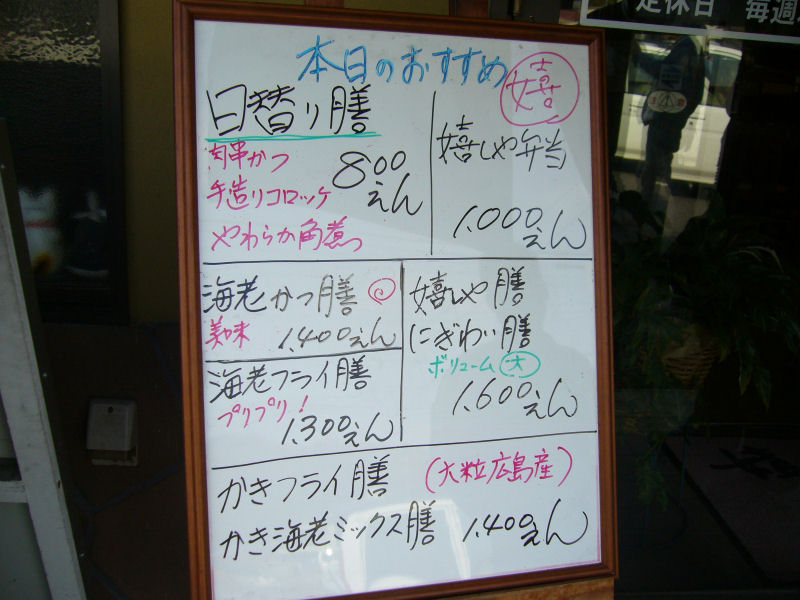 定休日 毎週
本日のおすすめ
嬉
日替り膳
肉串かつ
手造りコロッケ
やわらか角煮
800
えん
嬉しや弁当
1.000えん
海老かつ膳
美味
1.400えん
海老フライ膳
プリプリ!
1.300えん
嬉しや膳
にぎわい膳
ボリューム大
1.600えん
かきフライ膳
(大粒広島産)
かき海老ミックス膳 1.400えん